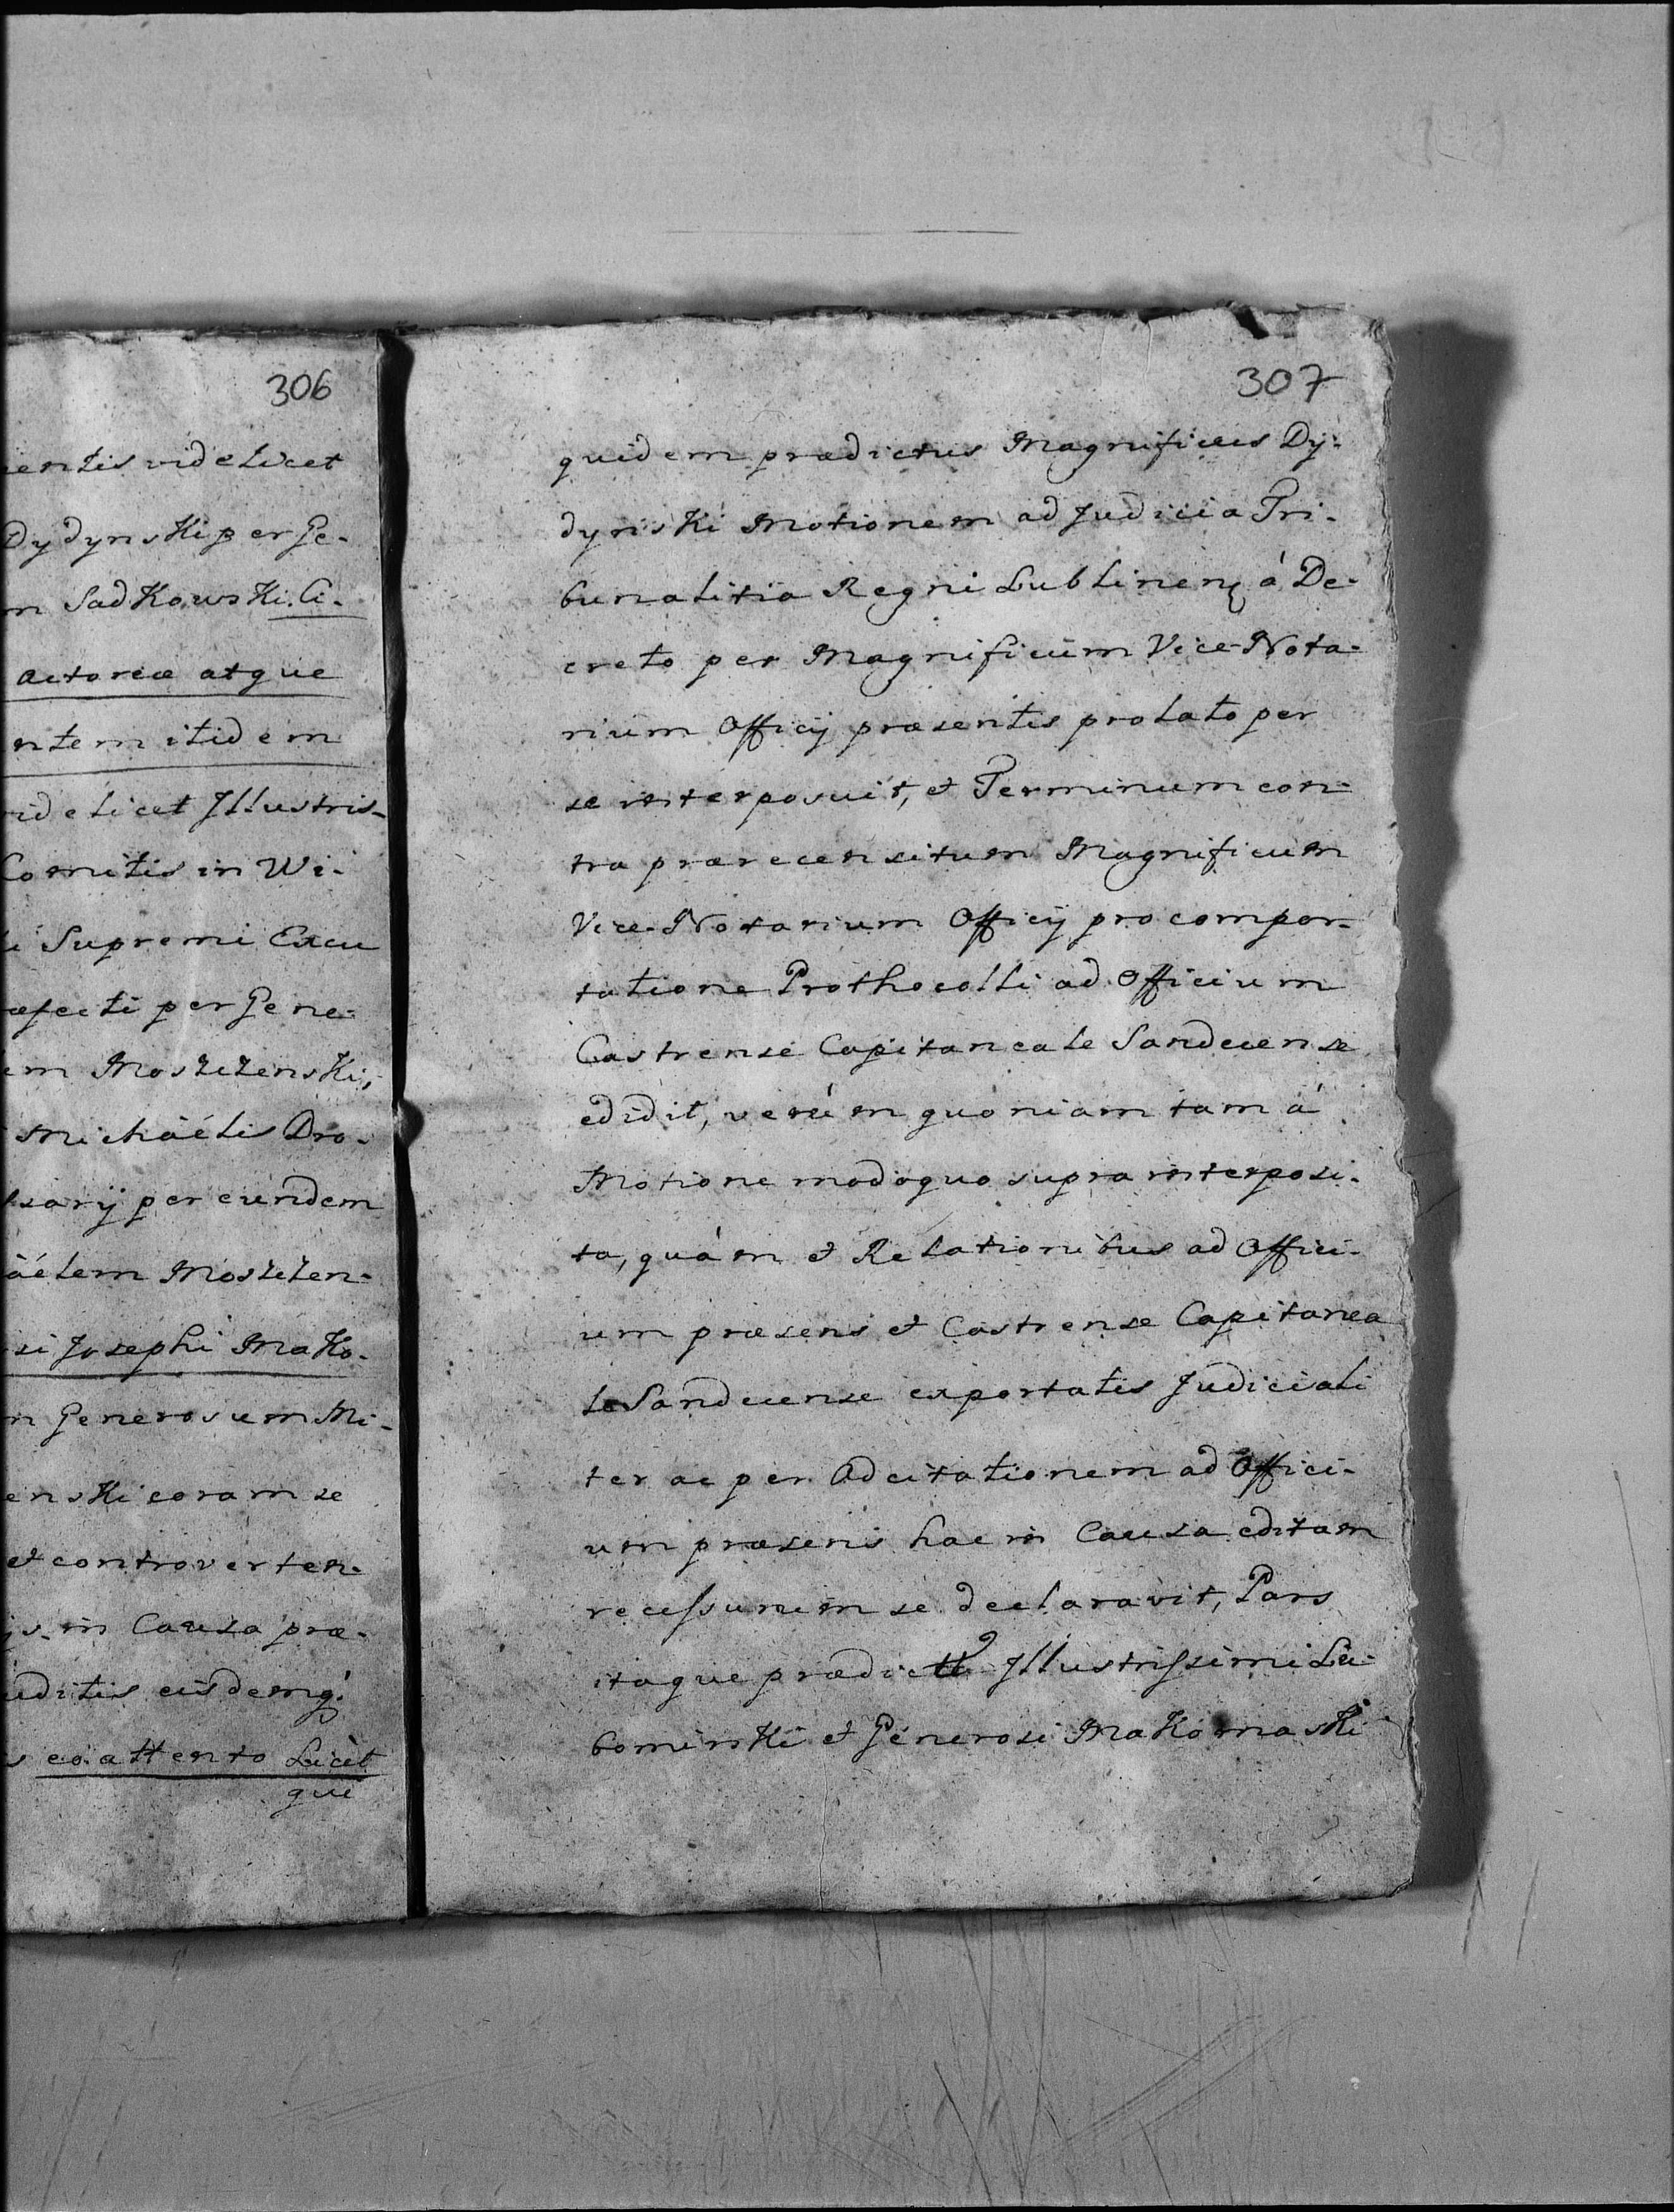 306
entis videlicet
Dydynski per Ge-
m Sadkowski. Ci-
actoreæ atque
ntem itidem
videlicet Illustris-
Comitis in Wi-
i Supremi Excu
æfecti per Gene-
em Moszczenski,
Michäélis Dro-
sarij per eundem
äélem Moszczen-
si Josephi Mako-
m Generosum Mi-
enski coram se
et controverten-
js in Causa præ-
uditis eisdemq́
s eo attento Licèt
que
307
quidem prædictus Magnificus Dy-
dynski Motionem ad Judicia Tri-
bunalitia Regni Lublinen á De-
creto per Magnificum Vice-Nota-
rium Officij præsentis prolato per
se interposuit, et Terminum con-
tra prærecensitum Magnificum
Vice-Notarium Officij pro compor-
tatione Prothocolli ad Officium
Castrense Capitaneale Sandecense
edidit, verúm quoniam tam á
Motione modoquo supra interposi-
ta, quám et Relationibus ad Offici-
um præsens et Castrense Capitanea
le Sandecense exportatis Judiciali
ter ac per Adcitationem ad Offici-
um præsens hac in Causa editam
recessurum se declaravit, Pars
itaque prædictt Illustrissimi Lu-
bominski et Generosi Makomaski